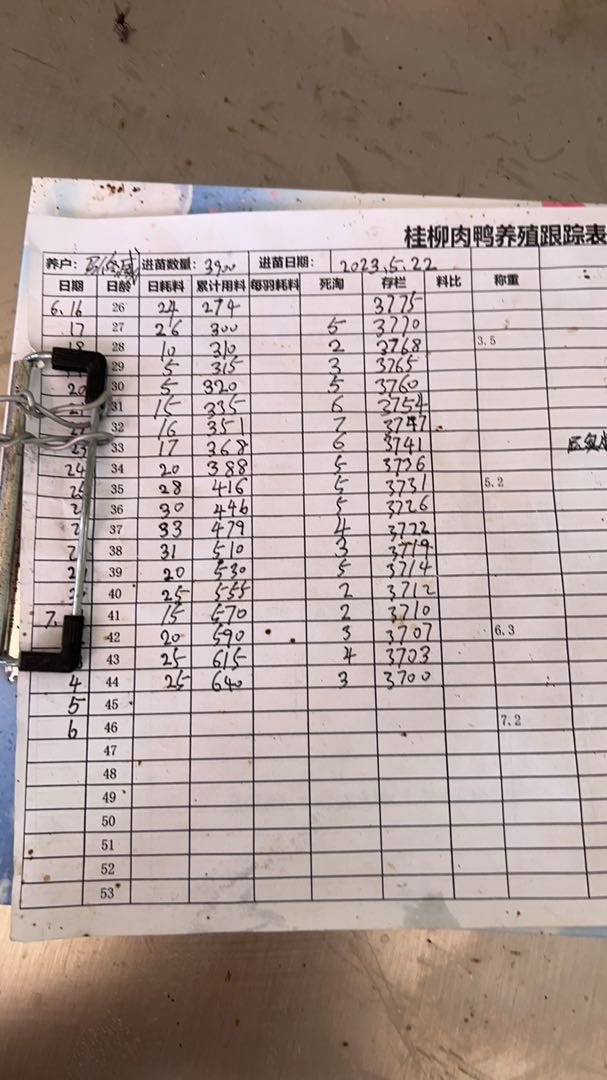 桂柳肉鸭养殖跟踪表
养户: 进苗数量: 3900 进苗日期: 2023.5.22
日期 日龄 日耗料 累计用料 每羽耗料 死淘 存栏 料比 称重
6.16 26 24 274 3775
17 27 26 300 5 3770
18 28 10 310 2 3768 3.5
29 5 315 3 3765
20 30 5 320 5 3760
31 15 335 6 3754
32 16 351 7 3747
23 33 17 368 6 3741
24 34 20 388 5 3736
25 35 28 416 5 3731 5.2
2 36 30 446 5 3726
2 37 33 479 4 3722
2 38 31 510 3 3719
2 39 20 530 5 3714
40 25 555 2 3712
7. 41 15 570 2 3710
42 20 590 3 3707 6.3
3 43 25 615 4 3703
4 44 25 640 3 3700
5 45
6 46 7.2
47
48
49
50
51
52
53